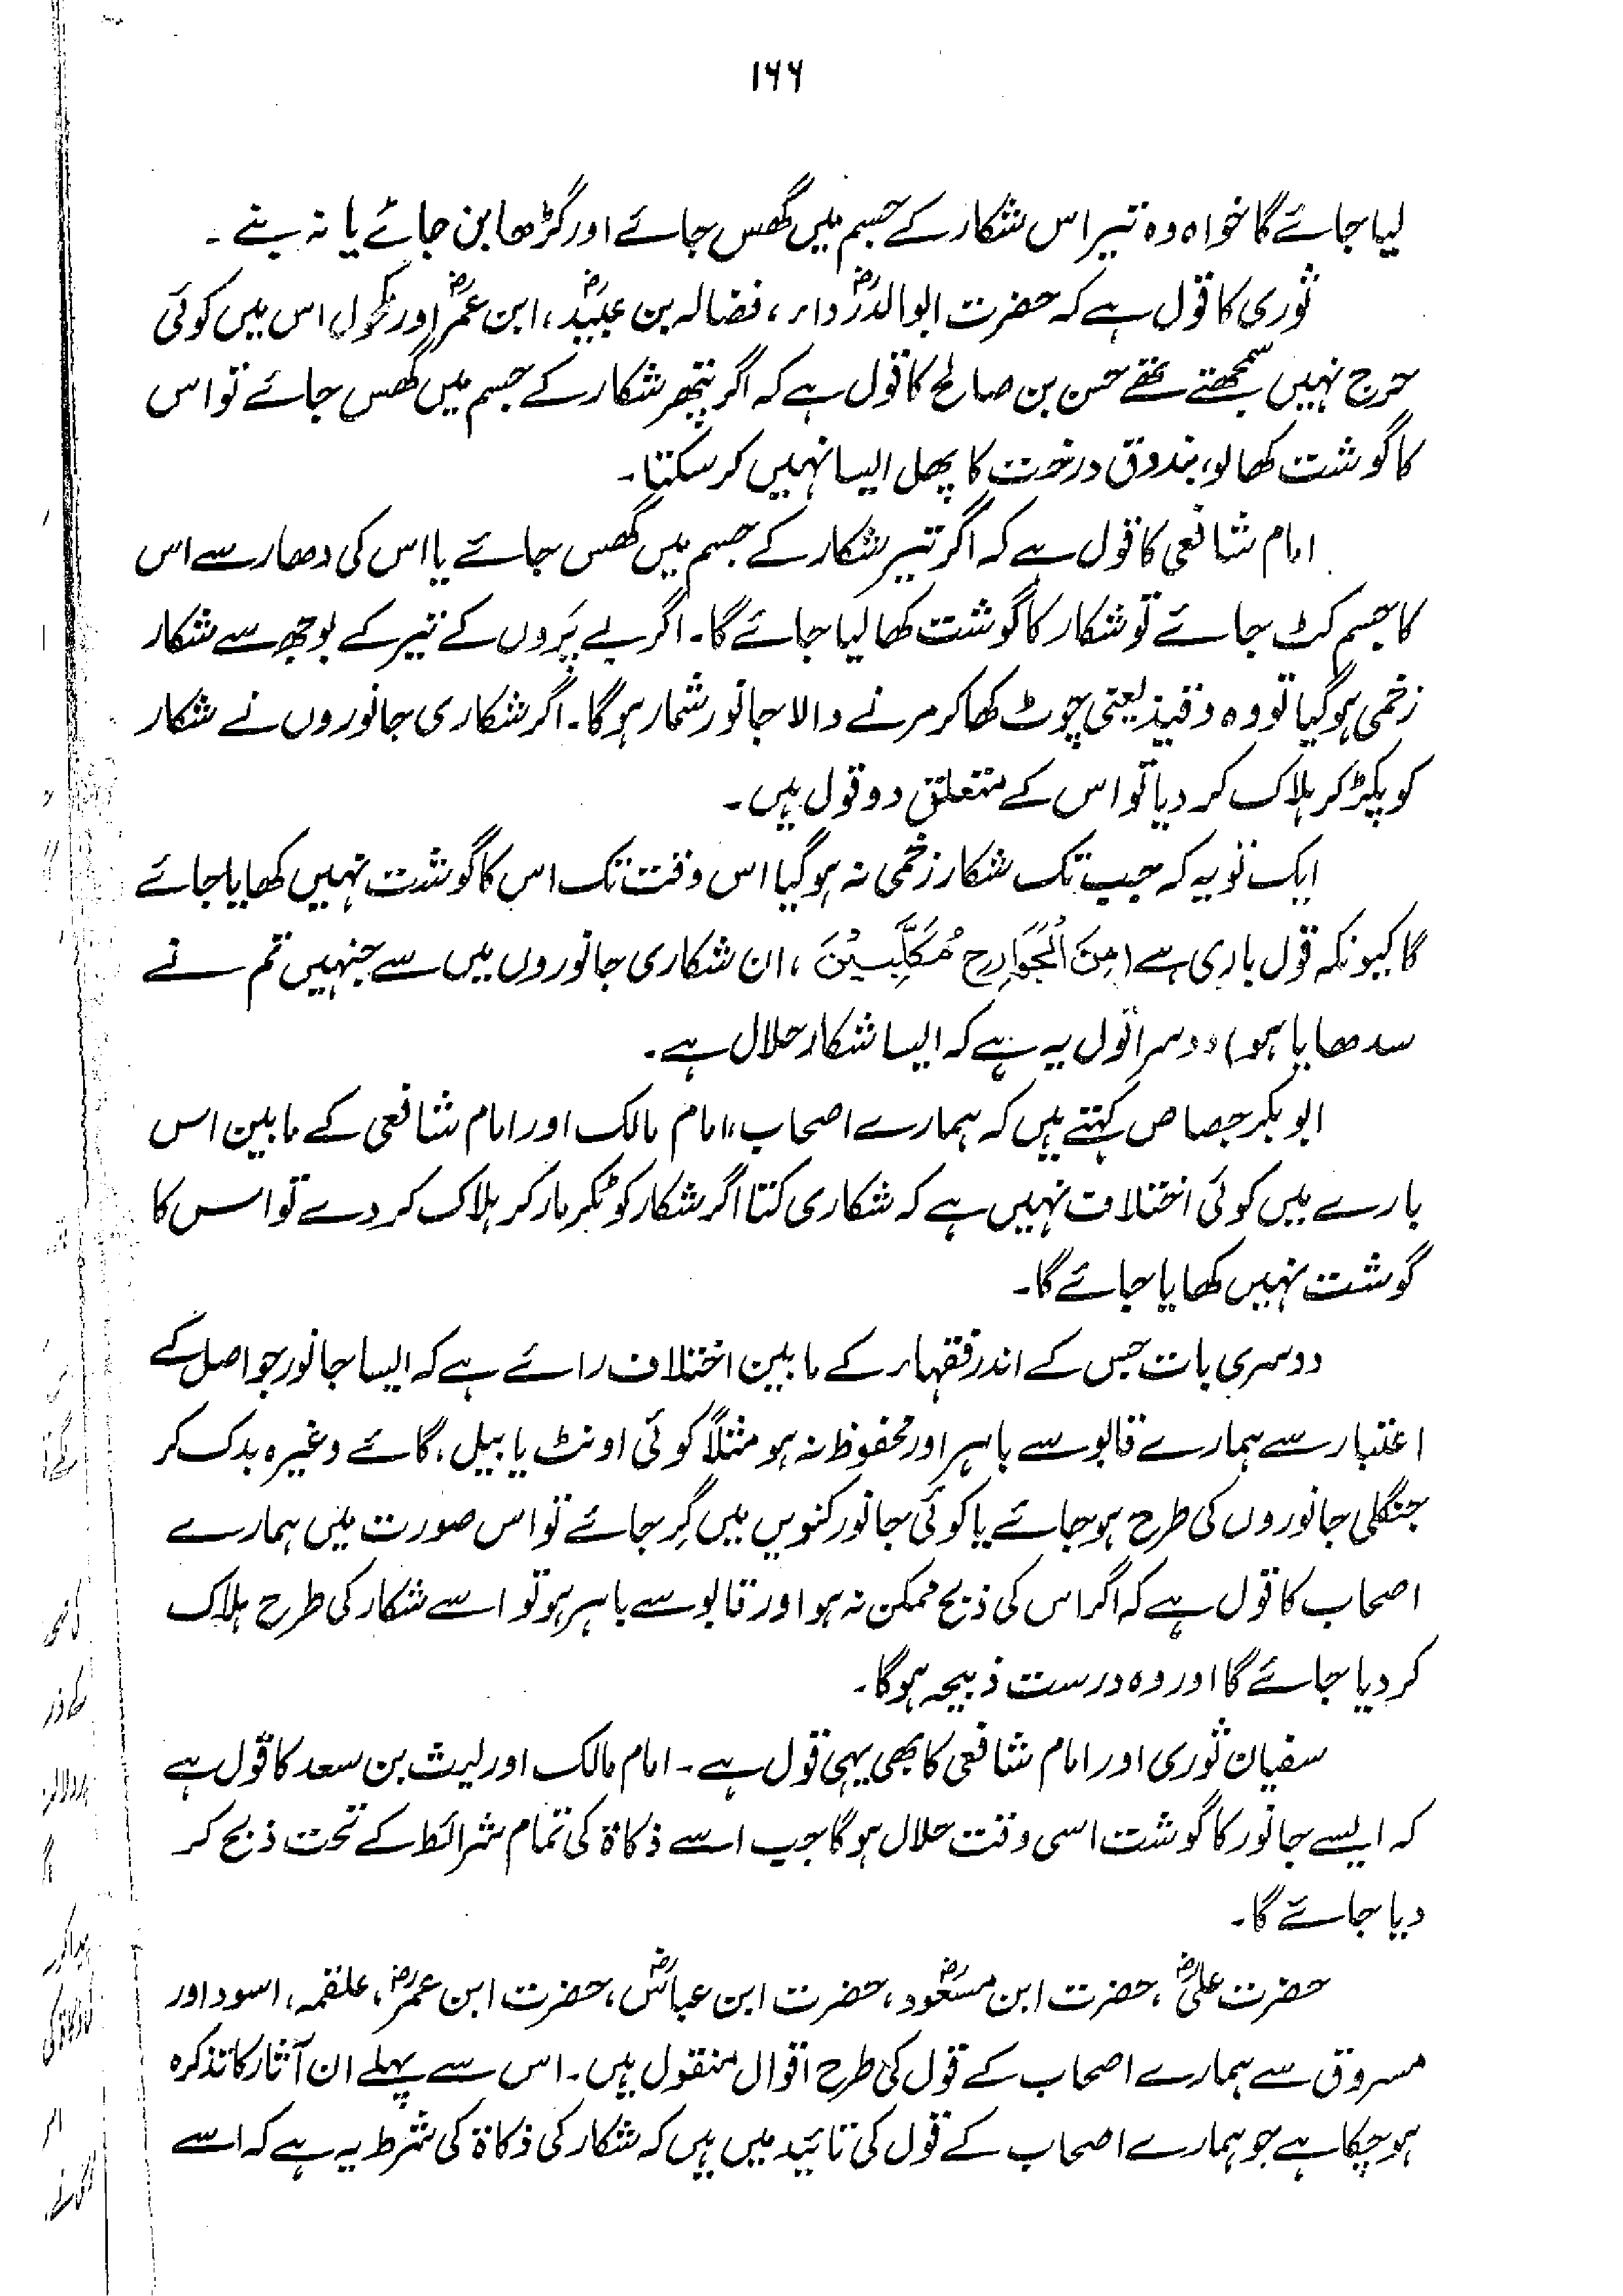 ۱۶۶
لیا جائے گا خواہ وہ تیر اس شکار کے جسم میں گھس جائے اور گڑھا بن جائے یا نہ بنے ۔
ثوری کا قول ہے کہ حضرت ابوالدرداءؓ، فضالہ بن عبیدؓ، ابن عمرؓ اور مکحول اس میں کوئی
حرج نہیں سمجھتے تھے حسن بن صالح کا قول ہے کہ اگر پتھر شکار کے جسم میں گھس جائے تو اس
کا گوشت کھالو، بندوق درخت کا پھل ایسا نہیں کرسکتا۔
امام شافعی کا قول ہے کہ اگر تیر شکار کے جسم میں گھس جائے یا اس کی دھار سے اس
کا جسم کٹ جائے تو شکار کا گوشت کھالیا جائے گا۔ اگر بے پَروں کے تیر کے بوجھ سے شکار
زخمی ہوگیا تو وہ وقیذ یعنی چوٹ کھاکر مرنے والا جانور شمار ہوگا۔ اگر شکاری جانوروں نے شکار
کو پکڑ کر ہلاک کر دیا تو اس کے متعلق دو قول ہیں۔
ایک تو یہ کہ جب تک شکار زخمی نہ ہوگیا اس وقت تک اس کا گوشت نہیں کھایا جائے
گا کیونکہ قول باری ہے (مِنَ الْجَوَارِحِ مُكَلِّبِيْنَ ، ان شکاری جانوروں میں سے جنہیں تم نے
سدھایا ہو) دوسرا قول یہ ہے کہ ایسا شکار حلال ہے۔
ابوبکر جصاص کہتے ہیں کہ ہمارے اصحاب، امام مالک اور امام شافعی کے مابین اس
بارے میں کوئی اختلاف نہیں ہے کہ شکاری کتا اگر شکار کو ٹکر مار کر ہلاک کر دے تو اس کا
گوشت نہیں کھایا جائے گا۔
دوسری بات جس کے اندر فقہاء کے مابین اختلاف رائے ہے کہ ایسا جانور جو اصل کے
اعتبار سے ہمارے قابو سے باہر اور محفوظ نہ ہو مثلاً کوئی اونٹ یا بیل، گائے وغیرہ بدک کر
جنگلی جانوروں کی طرح ہوجائے یا کوئی جانور کنویں میں گِر جائے تو اس صورت میں ہمارے
اصحاب کا قول ہے کہ اگر اس کی ذبح ممکن نہ ہو اور قابو سے باہر ہو تو اسے شکار کی طرح ہلاک
کر دیا جائے گا اور وہ درست ذبیحہ ہوگا۔
سفیان ثوری اور امام شافعی کا بھی یہی قول ہے ۔ امام مالک اور لیث بن سعد کا قول ہے
کہ ایسے جانور کا گوشت اسی وقت حلال ہوگا جب اسے ذکاۃ کی تمام شرائط کے تحت ذبح کر
دیا جائے گا۔
حضرت علیؓ، حضرت ابن مسعودؓ، حضرت ابن عباسؓ، حضرت ابن عمرؓ، علقمہ، اسود اور
مسروق سے ہمارے اصحاب کے قول کی طرح اقوال منقول ہیں۔ اس سے پہلے ان آثار کا تذکرہ
ہوچکا ہے جو ہمارے اصحاب کے قول کی تائید میں ہیں کہ شکار کی ذکاۃ کی شرط یہ ہے کہ اسے